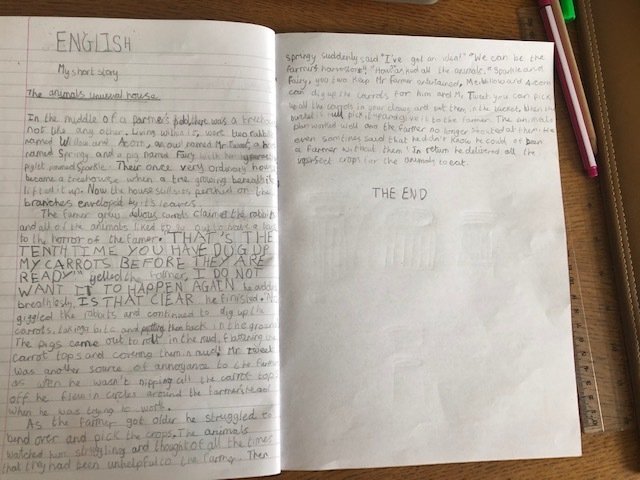 ENGLISH
My short story
The animals unusual house
In the middle of a farmer's field, there was a treehouse
not like any other. Living within it, were two rabbits
named Willow and Acorn, an owl named Mr Tweet, a horse
named Springy and a pig name Fairy with her
piglet named Sparkle. Their once very ordinary house
became a treehouse when a tree growing beneath it
lifted it up. Now the house sits perched on the
branches enveloped by its leaves.
The famer grew delious carrots claimed the rabbits
and all of the animals liked to go out to have a
to the horror of the farmer. "THAT'S THE
TENTH TIME YOU HAVE DUG UP
MY CARROTS BEFORE THEY ARE
READY!" yelled the farmer, I DO NOT
WANT IT TO HAPPEN AGAIN he added
breathlessly. IS THAT CLEAR he finished.
giggled the rabbits and continued to dig up the
carrots. taking bits and putting them back in the ground.
The pigs came out to roll in the mud, flattening the
carrot tops and covering them in mud. Mr Tweet
was another source of annoyance to the farmer
as when he wasn't nipping all the carrot tops
off he flew in circles around the farmer's head
when he was trying to work.
As the farmer got older he struggled to
bend over and pick the crops. The animals
watched him struggling and thought of all the times
that they had been unhelpful to the farmer. Then
springy suddenly said "I've got an idea!" "We can be the
farmers harvesters!" "How" asked all the animals. "Sparkle and
Fairy, you two keep Mr Farmer entertained, Me, Willow and Acorn
can dig up the carrots for him and Mr Tweet you can pick
up all the carrots in your claws and put them in the bucket. When the
bucket is full pick it up and give it to the farmer. The animals
plan worked well and the farmer no longer shouted at them. He
even sometimes said that he didn't know he could of been
a farmer without them! In return he delivered all the
crops for the animals to eat.
THE END